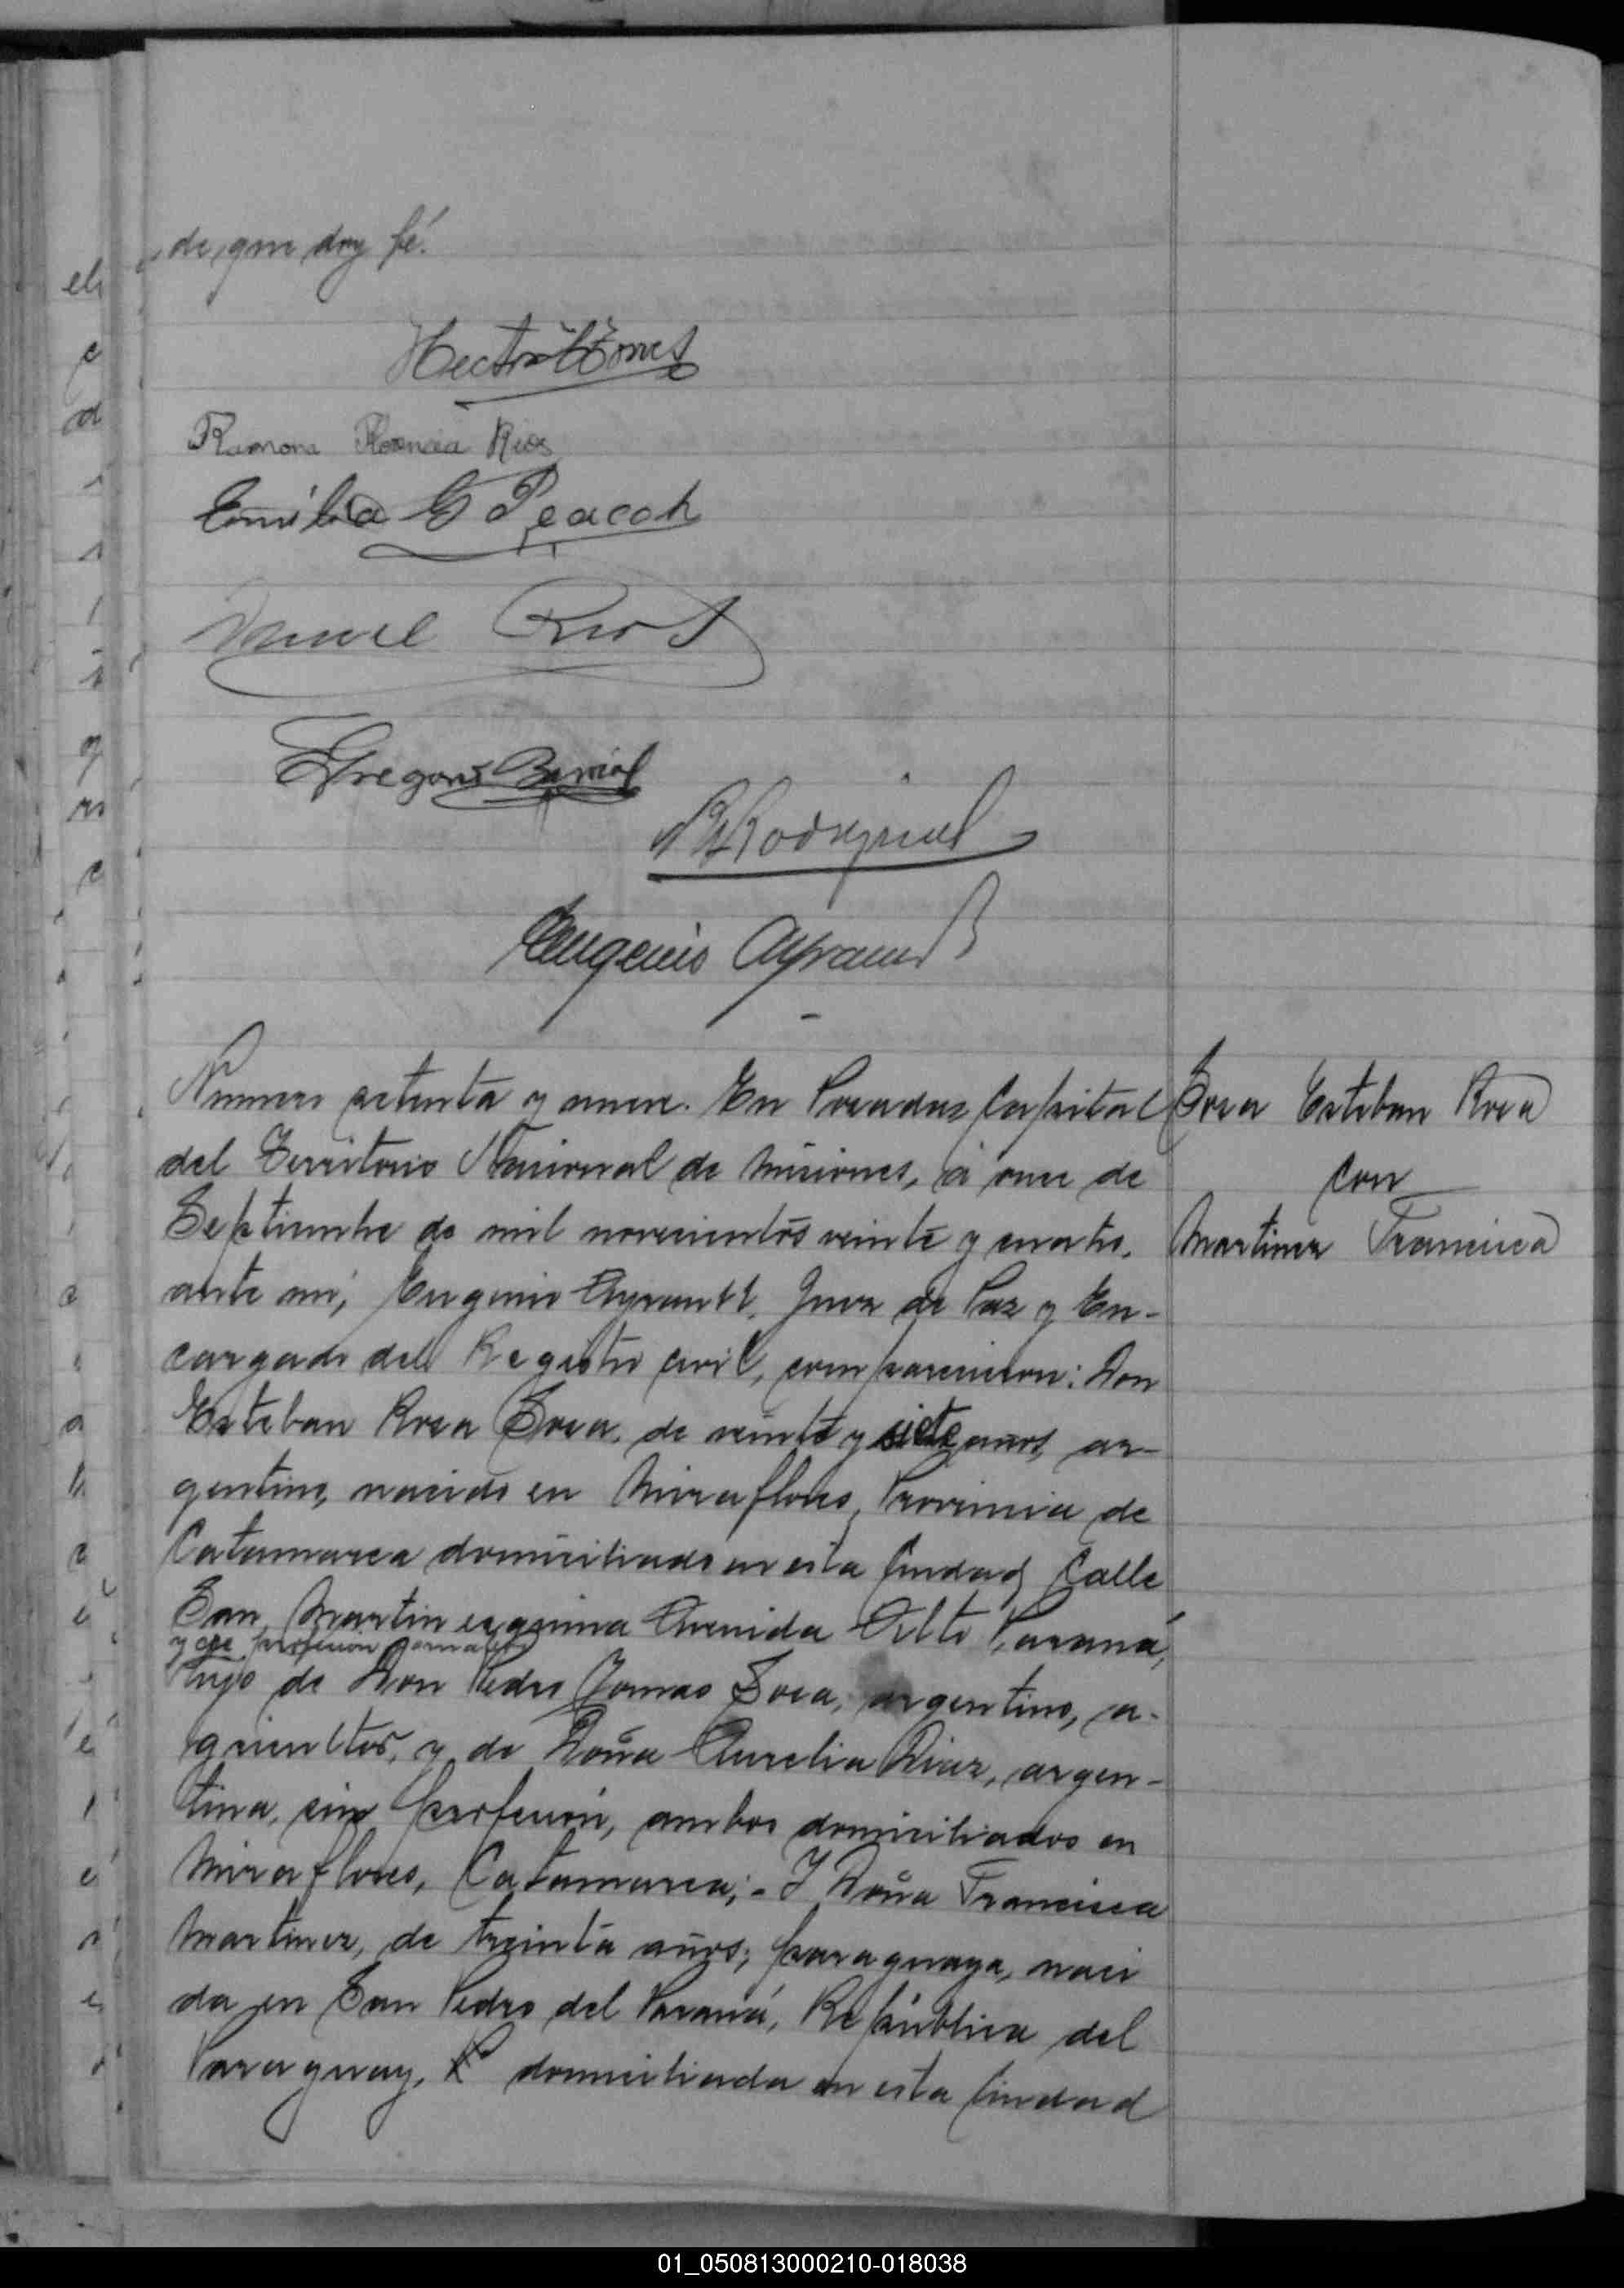 de que doy fé.
Hector Torres
Ramona Florencia Rios
Emilia G Peacoh
Manuel Rios
Gregorio
Rodriguez
Eugenio Ayrault
Número setenta y nueve. En Posadas Capital
del Territorio Nacional de Misiones, á once de
Septiembre de mil novecientos veinte y cuatro.
ante mi, Eugenio Ayrault, Juez de Paz y En-
cargado del Registro Civil, comparecieron: Don
Esteban Rosa Sosa, de veinte y siete años, ar-
gentino, nacido en Miraflores, Provincia de
Catamarca domiciliado en esta Ciudad Calle
San Martin esquina Avenida Alto Paraná,
y de profesion jornalero
hijo de Don Pedro Tomas Sosa, argentino, a-
gricultor, y de Doña Aurelia Diaz, argen-
tina, sin profesión, ambos domiciliados en
Miraflores, Catamarca; - Y Doña Francisca
Martinez, de treinta años, paraguaya, naci
da en San Pedro del Paraná, República del
Paraguay, domiciliada en esta Ciudad
Sosa Esteban Rosa
con
Martinez Francisca
01_050813000210-018038